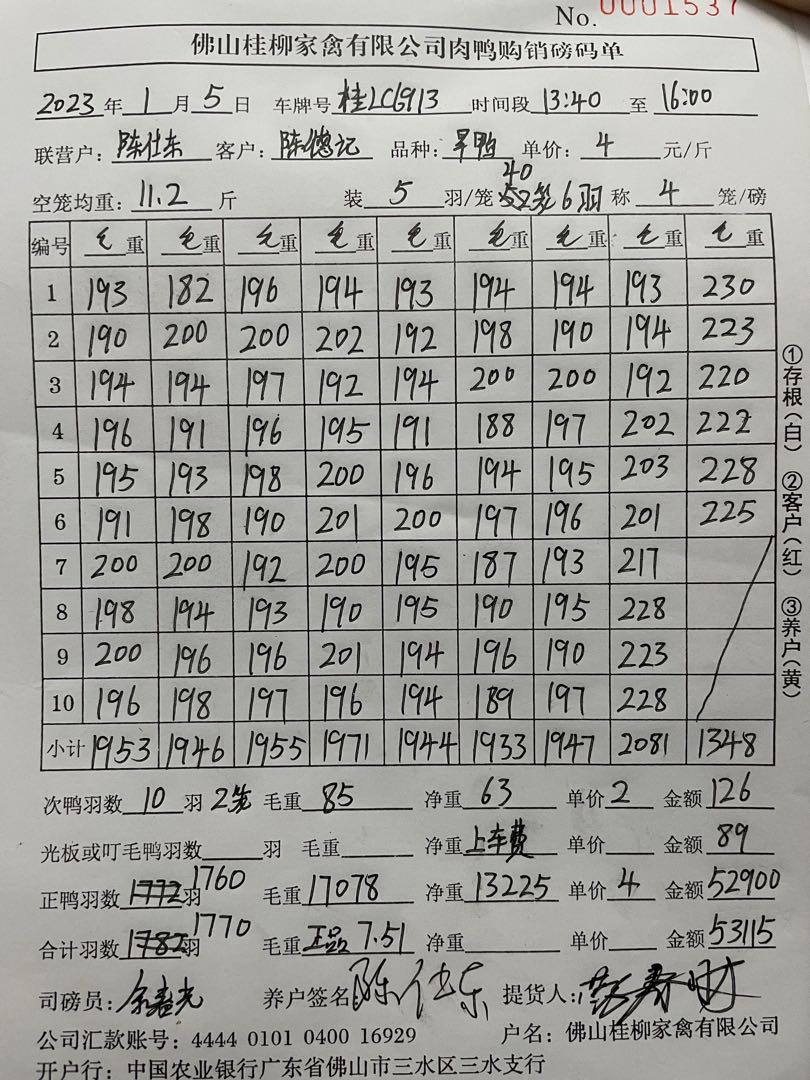 No. 0001537
佛山桂柳家禽有限公司肉鸭购销磅码单
2023年1月5日 车牌号 桂LCG913 时间段 13:40 至 16:00
联营户：陈仕东 客户：陈德记 品种：旱鸭 单价：4 元/斤
40
空笼均重：11.2 斤 装 5 羽/笼 52笼6羽 称 4 笼/磅
编号 毛重 毛重 毛重 毛重 毛重 毛重 毛重 毛重 毛重
1 193 182 196 194 193 194 194 193 230
2 190 200 200 202 192 198 190 194 223
3 194 194 197 192 194 200 200 192 220
4 196 191 196 195 191 188 197 202 222
5 195 193 198 200 196 194 195 203 228
6 191 198 190 201 200 197 196 201 225
7 200 200 192 200 195 187 193 217
8 198 194 193 190 195 190 195 228
9 200 196 196 201 194 196 190 223
10 196 198 197 196 194 189 197 228
小计 1953 1946 1955 1971 1944 1933 1947 2081 1348
①存根(白) ②客户(红) ③养户(黄)
次鸭羽数 10 羽 2笼 毛重 85 净重 63 单价 2 金额 126
光板或叮毛鸭羽数 羽 毛重 净重 上车费 单价 金额 89
正鸭羽数 1772 羽 1760 毛重 17078 净重 13225 单价 4 金额 52900
合计羽数 1782 羽 1770 毛重 正品 7.51 净重 单价 金额 53115
司磅员： 养户签名 陈仕东 提货人：
公司汇款账号：4444 0101 0400 16929 户名：佛山桂柳家禽有限公司
开户行：中国农业银行广东省佛山市三水区三水支行